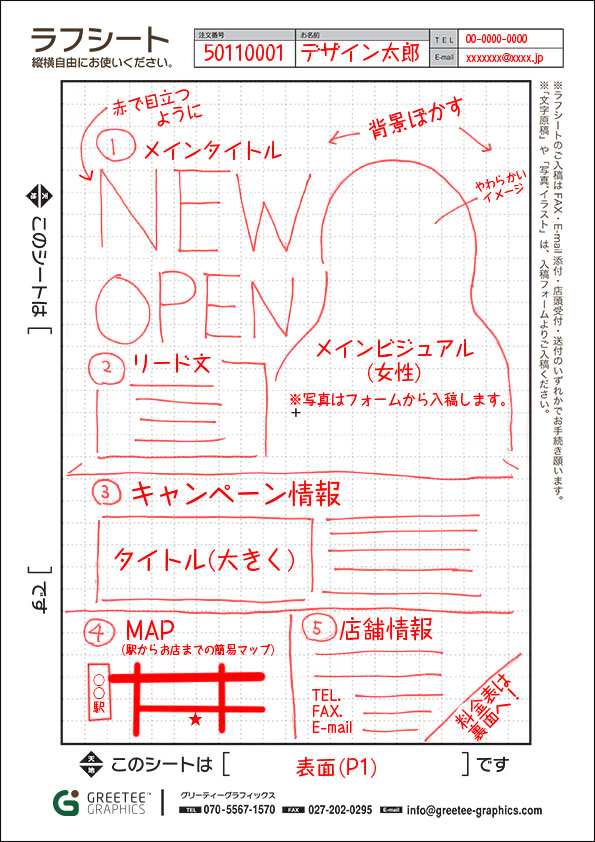 ラフシート
縦横自由にお使いください。
注文番号
50110001
お名前
デザイン太郎
TEL
00-0000-0000
E-mail
xxxxxxx@xxxx.jp
赤で目立つ
ように
背景ぼかす
① メインタイトル
NEW
OPEN
やわらかい
イメージ
② リード文
メインビジュアル
(女性)
※写真はフォームから入稿します。
③ キャンペーン情報
タイトル(大きく)
④ MAP
(駅からお店までの簡易マップ)
〇〇駅
⑤ 店舗情報
TEL.
FAX.
E-mail
料金表は
裏面へ！
※ラフシートのご入稿は FAX・E-mail 添付・店頭受付・送付のいずれかでお手続き願います。
※「文字原稿」や「写真、イラスト」は、入稿フォームよりご入稿ください。
天 地
このシートは [ ] です
天 地
このシートは [ 表面(P1) ] です
GREETEE™
GRAPHICS
グリーティーグラフィックス
TEL 070-5567-1570 FAX 027-202-0295 E-mail info@greetee-graphics.com